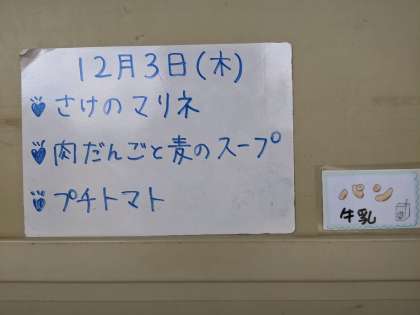 12月3日(木)
さけのマリネ
肉だんごと麦のスープ
プチトマト
パン
牛乳